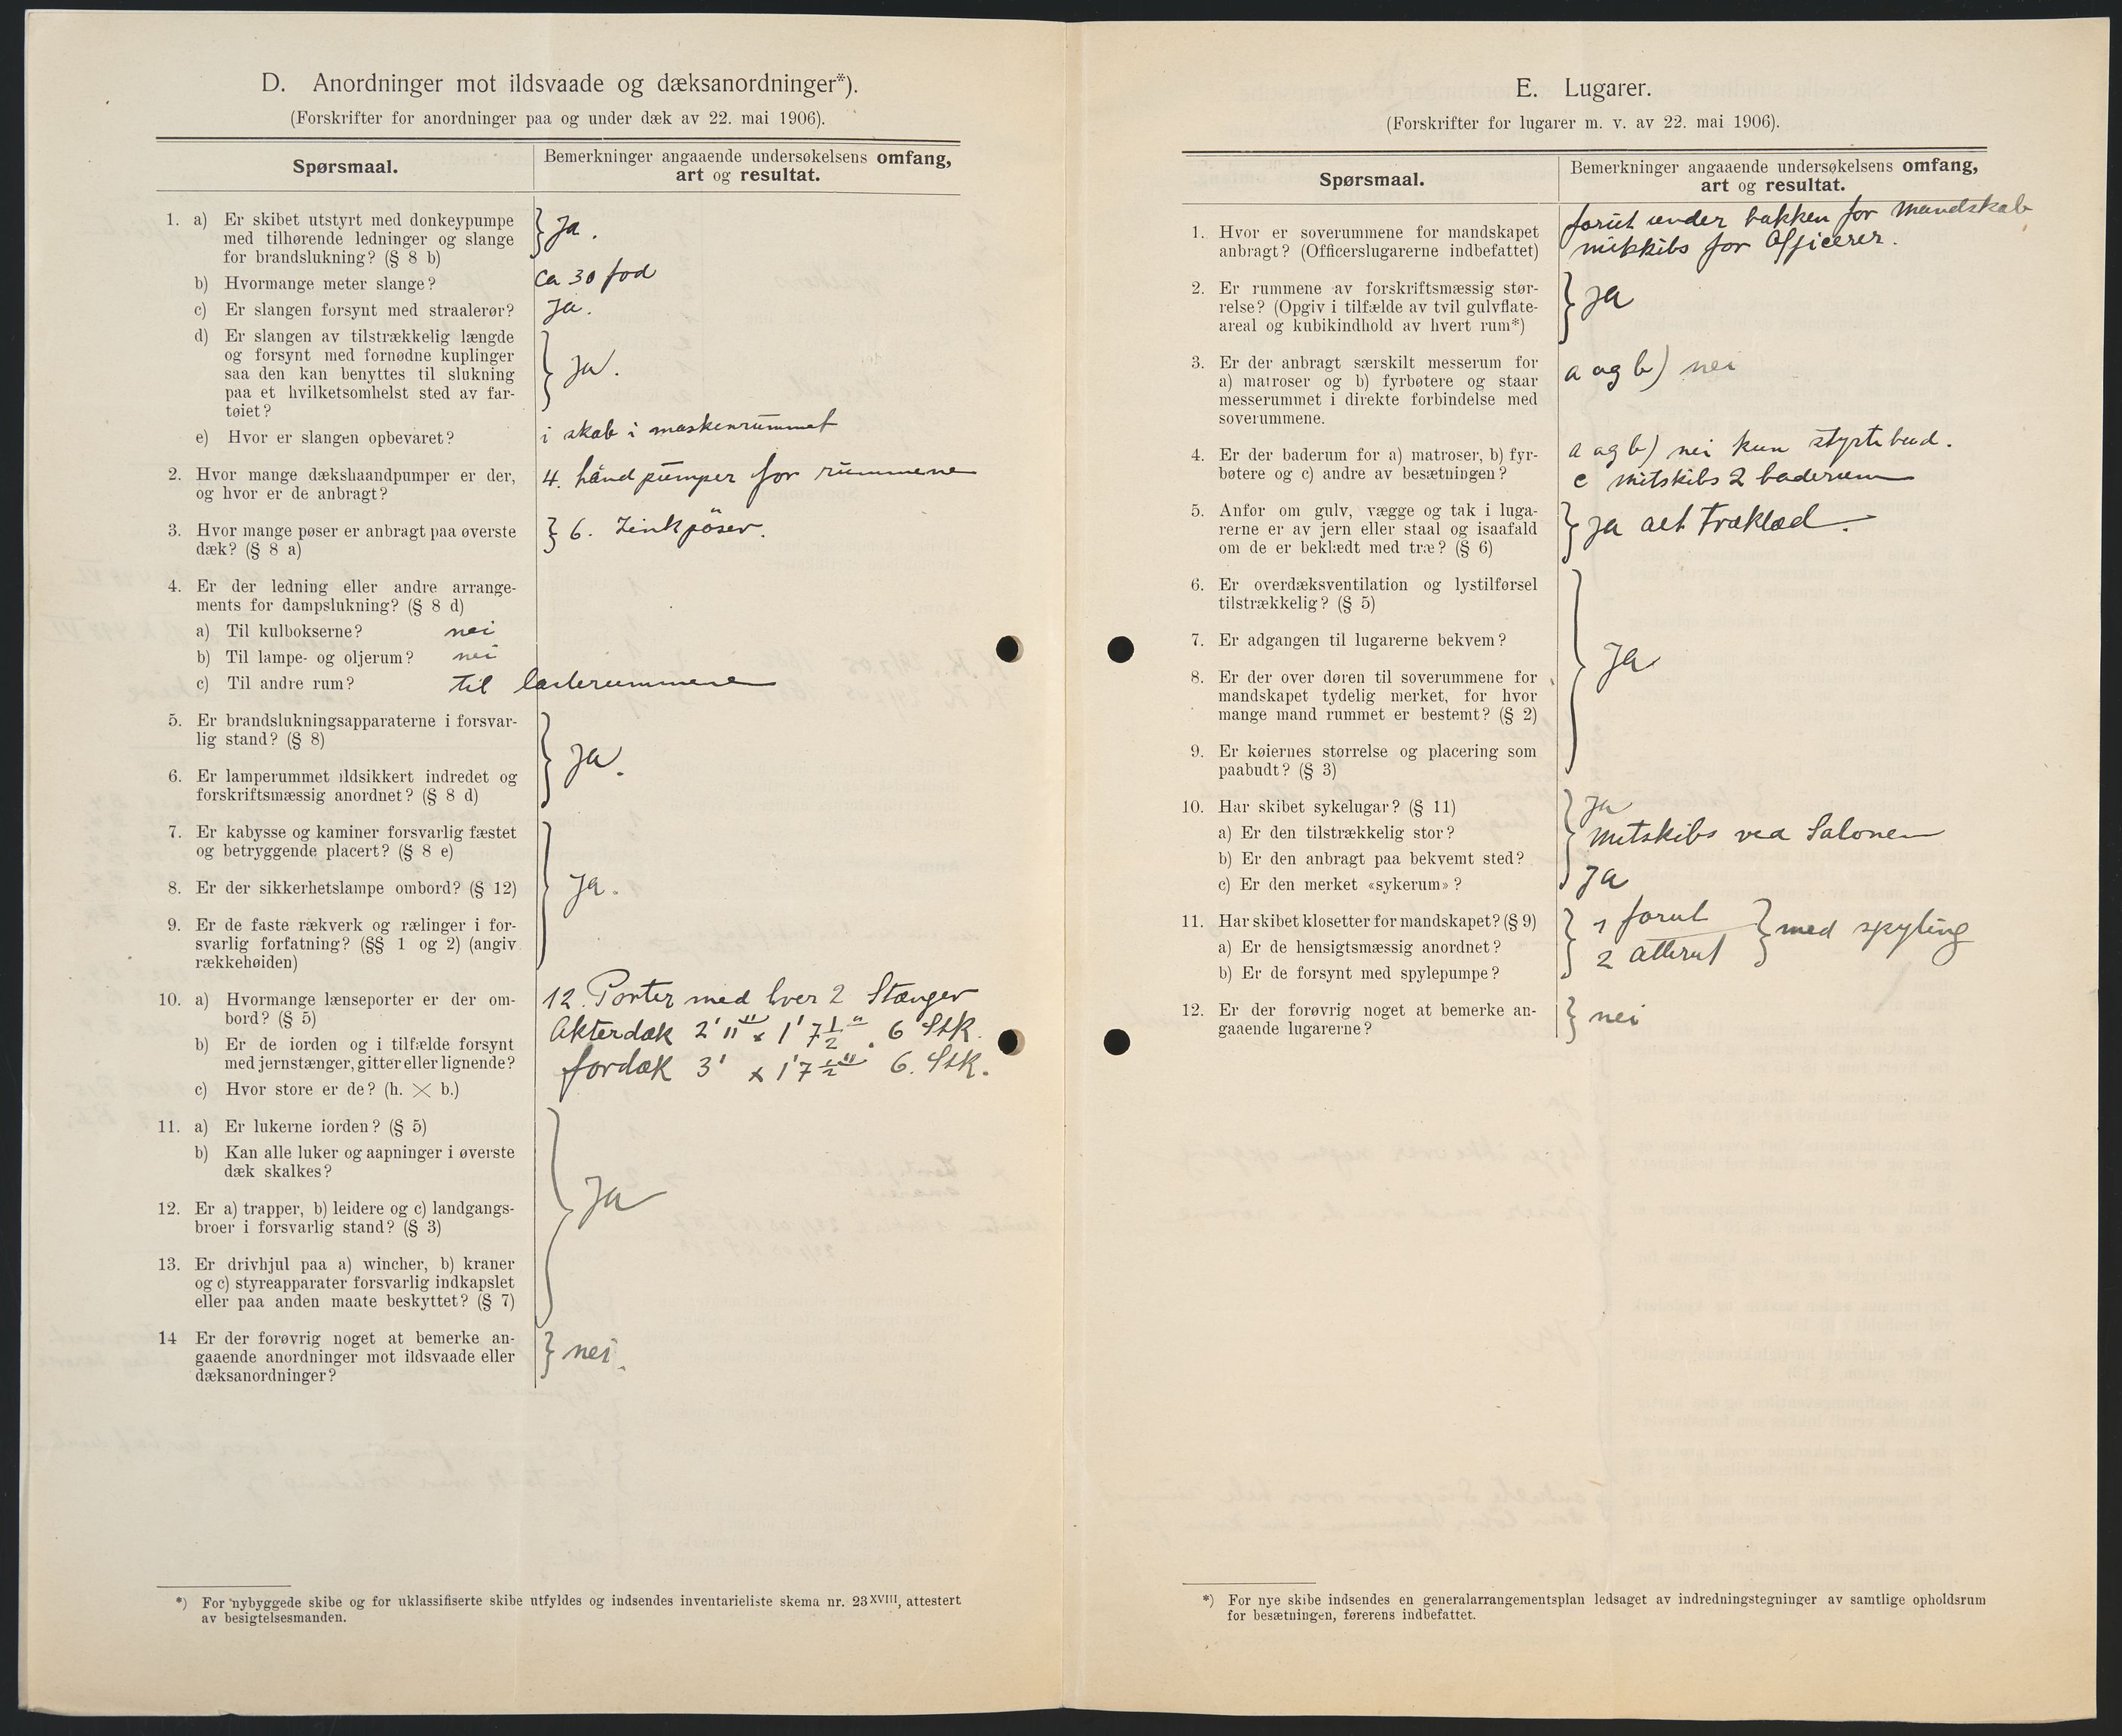 D. Anordninger mot ildsvaade og dæksanordninger*).
(Forskrifter for anordninger paa og under dæk av 22. mai 1906).
Spørsmaal.
Bemerkninger angaaende undersøkelsens omfang,
art og resultat.
1. a) Er skibet utstyrt med donkeypumpe
med tilhørende ledninger og slange
for brandslukning? (§ 8 b)
Ja.
b) Hvormange meter slange?
ca 30 fod
c) Er slangen forsynt med straalerør?
Ja.
d) Er slangen av tilstrækkelig længde
og forsynt med fornødne kuplinger
saa den kan benyttes til slukning
paa et hvilketsomhelst sted av far-
tøiet?
Ja.
e) Hvor er slangen opbevaret?
i skab i maskenrummet
2. Hvor mange dækshaandpumper er der,
og hvor er de anbragt?
4. håndpumper for rummene
3. Hvor mange pøser er anbragt paa øverste
dæk? (§ 8 a)
6. Zinkpöser.
4. Er der ledning eller andre arrange-
ments for dampslukning? (§ 8 d)
a) Til kulbokserne? nei
b) Til lampe- og oljerum? nei
c) Til andre rum? til lasterummene
5. Er brandslukningsapparaterne i forsvar-
lig stand? (§ 8)
6. Er lamperummet ildsikkert indredet og
forskriftsmæssig anordnet? (§ 8 d)
Ja.
7. Er kabysse og kaminer forsvarlig fæstet
og betryggende placert? (§ 8 e)
8. Er der sikkerhetslampe ombord? (§ 12)
Ja.
9. Er de faste rækverk og rælinger i for-
svarlig forfatning? (§§ 1 og 2) (angiv
rækkehøiden)
10. a) Hvormange lænseporter er der om-
bord? (§ 5)
12. Porter med hver 2 Stænger
b) Er de iorden og i tilfælde forsynt
med jernstænger, gitter eller lignende?
Akterdæk 2' 11" x 1' 7 1/2". 6 Stk.
fordæk 3' x 1' 7 1/2" 6. Stk.
c) Hvor store er de? (h. × b.)
11. a) Er lukerne iorden? (§ 5)
b) Kan alle luker og aapninger i øverste
dæk skalkes?
12. Er a) trapper, b) leidere og c) landgangs-
broer i forsvarlig stand? (§ 3)
Ja
13. Er drivhjul paa a) wincher, b) kraner
og c) styreapparater forsvarlig indkapslet
eller paa anden maate beskyttet? (§ 7)
14 Er der forøvrig noget at bemerke an-
gaaende anordninger mot ildsvaade eller
dæksanordninger?
nei.
*) For nybyggede skibe og for uklassifiserte skibe utfyldes og indsendes inventarieliste skema nr. 23XVIII, attestert
av besigtelsesmanden.
E. Lugarer.
(Forskrifter for lugarer m. v. av 22. mai 1906).
Spørsmaal.
Bemerkninger angaaende undersøkelsens omfang,
art og resultat.
1. Hvor er soverummene for mandskapet
anbragt? (Officerslugarerne indbefattet)
forut under bakken for Mandskab
mitskibs for Officerer.
2. Er rummene av forskriftsmæssig stør-
relse? (Opgiv i tilfælde av tvil gulvflate-
areal og kubikindhold av hvert rum*)
Ja
3. Er der anbragt særskilt messerum for
a) matroser og b) fyrbøtere og staar
messerummet i direkte forbindelse med
soverummene.
a og b) nei
4. Er der baderum for a) matroser, b) fyr-
bøtere og c) andre av besætningen?
a og b) nei kun styrtebad.
c mitskibs 2 baderum
5. Anfør om gulv, vægge og tak i luga-
rerne er av jern eller staal og isaafald
om de er beklædt med træ? (§ 6)
Ja alt Træklæd.
6. Er overdæksventilation og lystilførsel
tilstrækkelig? (§ 5)
7. Er adgangen til lugarerne bekvem?
Ja
8. Er der over døren til soverummene for
mandskapet tydelig merket, for hvor
mange mand rummet er bestemt? (§ 2)
9. Er køiernes størrelse og placering som
paabudt? (§ 3)
10. Har skibet sykelugar? (§ 11)
Ja
a) Er den tilstrækkelig stor?
Mitskibs ved Salonen
b) Er den anbragt paa bekvemt sted?
c) Er den merket «sykerum»?
Ja
11. Har skibet klosetter for mandskapet? (§ 9)
1 forut
a) Er de hensigtsmæssig anordnet?
2 atterut
med spyling
b) Er de forsynt med spylepumpe?
12. Er der forøvrig noget at bemerke an-
gaaende lugarerne?
nei
*) For nye skibe indsendes en generalarrangementsplan ledsaget av indredningstegninger av samtlige opholdsrum
for besætningen, førerens indbefattet.